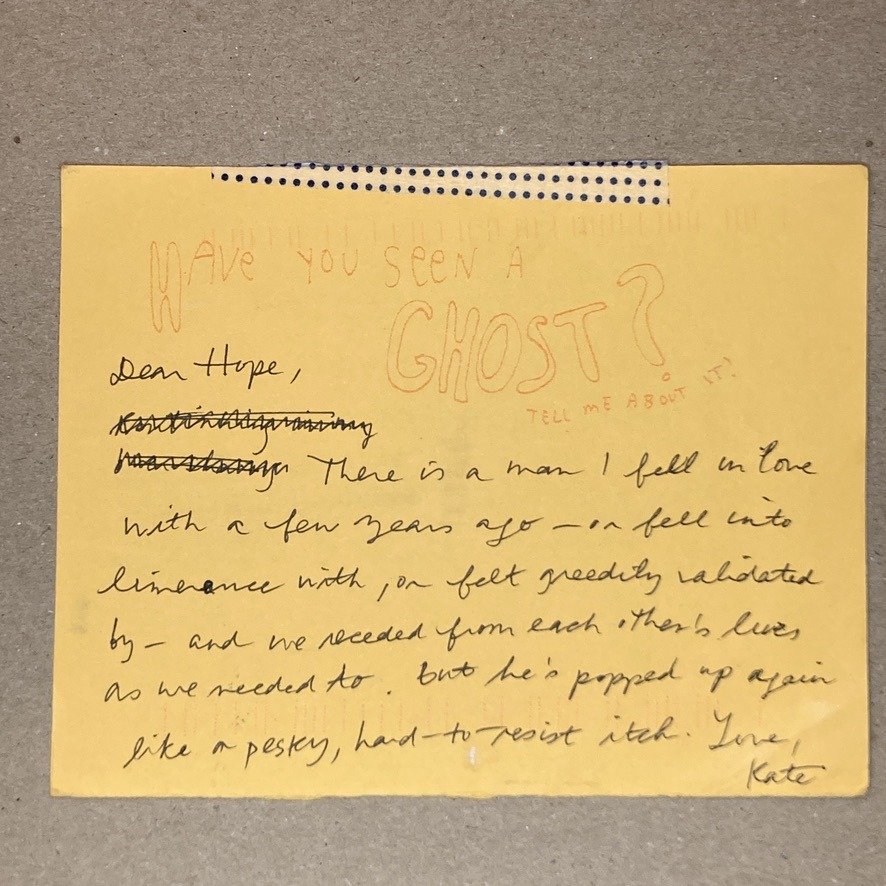 HAVE YOU SEEN A
GHOST?
TELL ME ABOUT IT!
Dear Hope,
There is a man I fell in love
with a few years ago – or fell into
limerance with, or felt greedily validated
by – and we receded from each other's lives
as we needed to. But he's popped up again
like a pesky, hard-to-resist itch. Love,
Kate